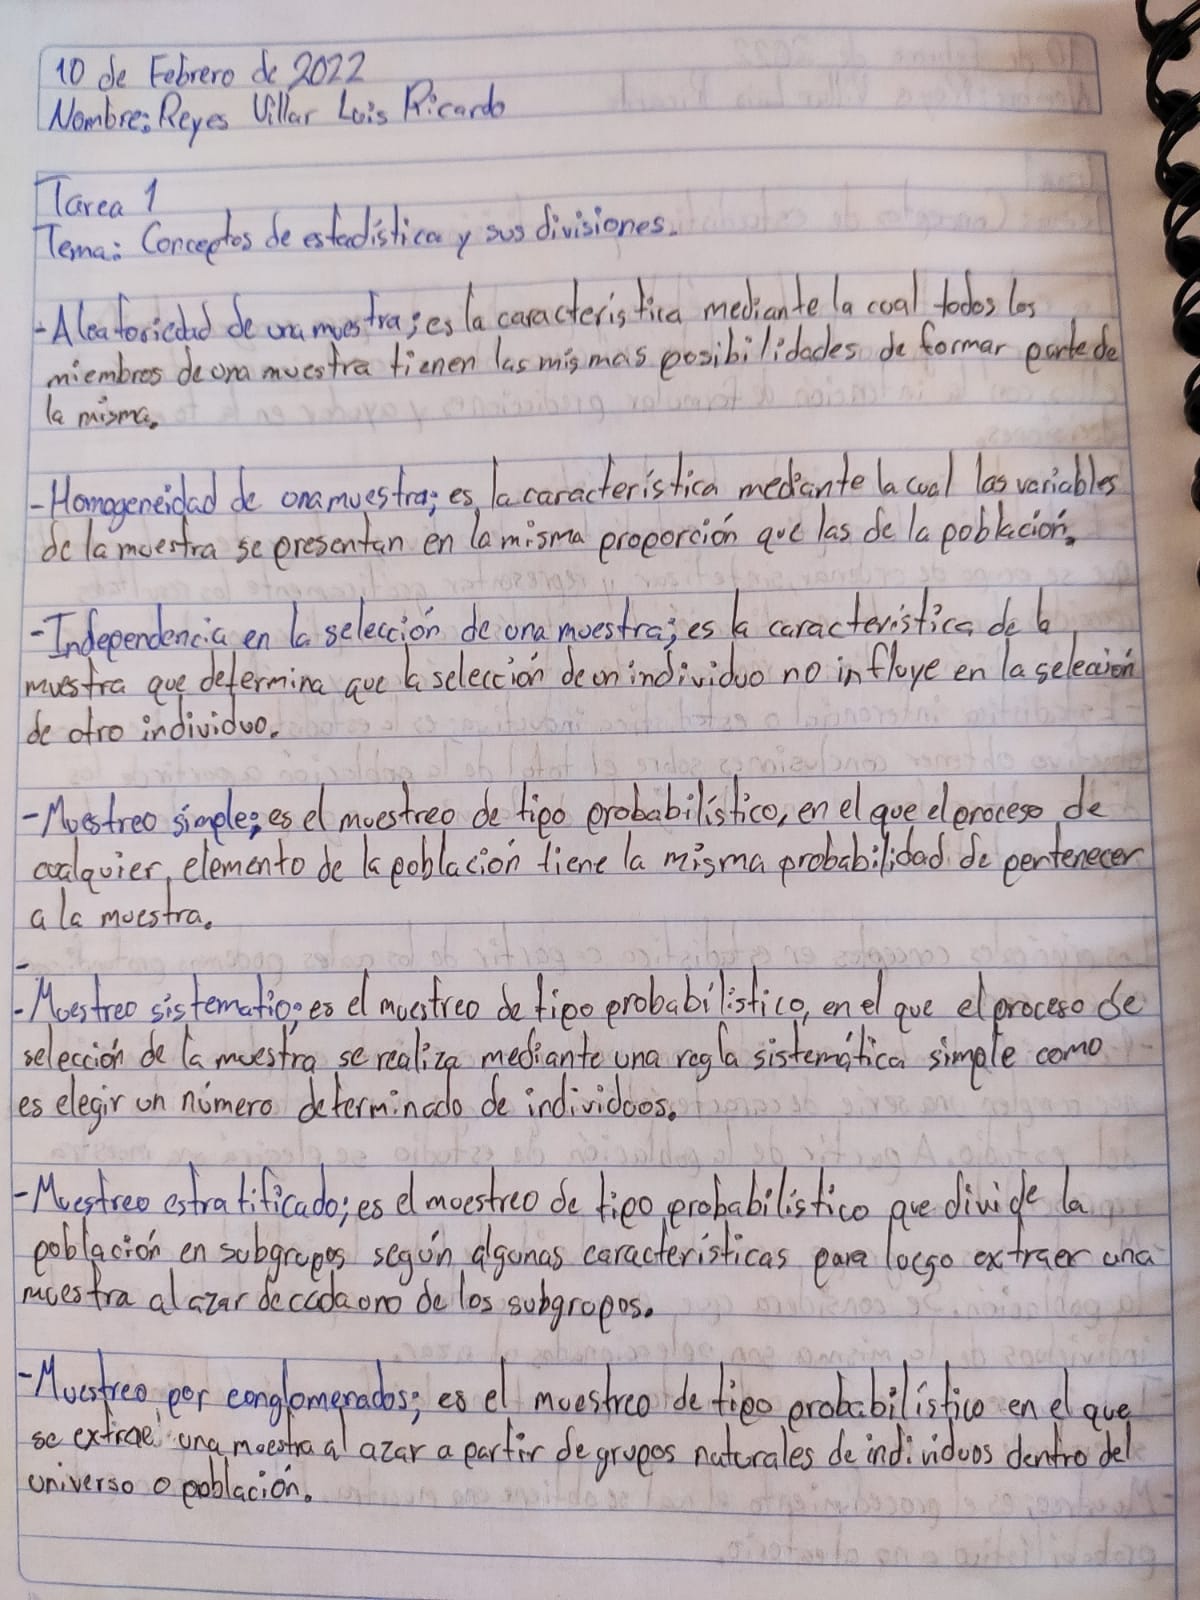 10 de Febrero de 2022
Nombre: Reyes Villar Luis Ricardo
Tarea 1
Tema: Conceptos de estadística y sus divisiones.
-Aleatoriedad de una muestra; es la característica mediante la cual todos los
miembros de una muestra tienen las mismas posibilidades de formar parte de
la misma.
-Homogeneidad de una muestra; es la característica mediante la cual las variables
de la muestra se presentan en la misma proporción que las de la población.
-Independencia en la selección de una muestra; es la característica de la
muestra que determina que la selección de un individuo no influye en la selección
de otro individuo.
-Muestreo simple; es el muestreo de tipo probabilístico, en el que el proceso de
cualquier elemento de la población tiene la misma probabilidad de pertenecer
a la muestra.
-
-Muestreo sistematio; es el muestreo de tipo probabilístico, en el que el proceso de
selección de la muestra se realiza mediante una regla sistemática simple como
es elegir un número determinado de individuos.
-Muestreo estratificado; es el muestreo de tipo probabilístico que divide la
población en subgrupos según algunas características para luego extraer una
muestra al azar de cada uno de los subgrupos.
-Muestreo por conglomerados; es el muestreo de tipo probabilístico en el que
se extrae una muestra al azar a partir de grupos naturales de individuos dentro del
universo o población.